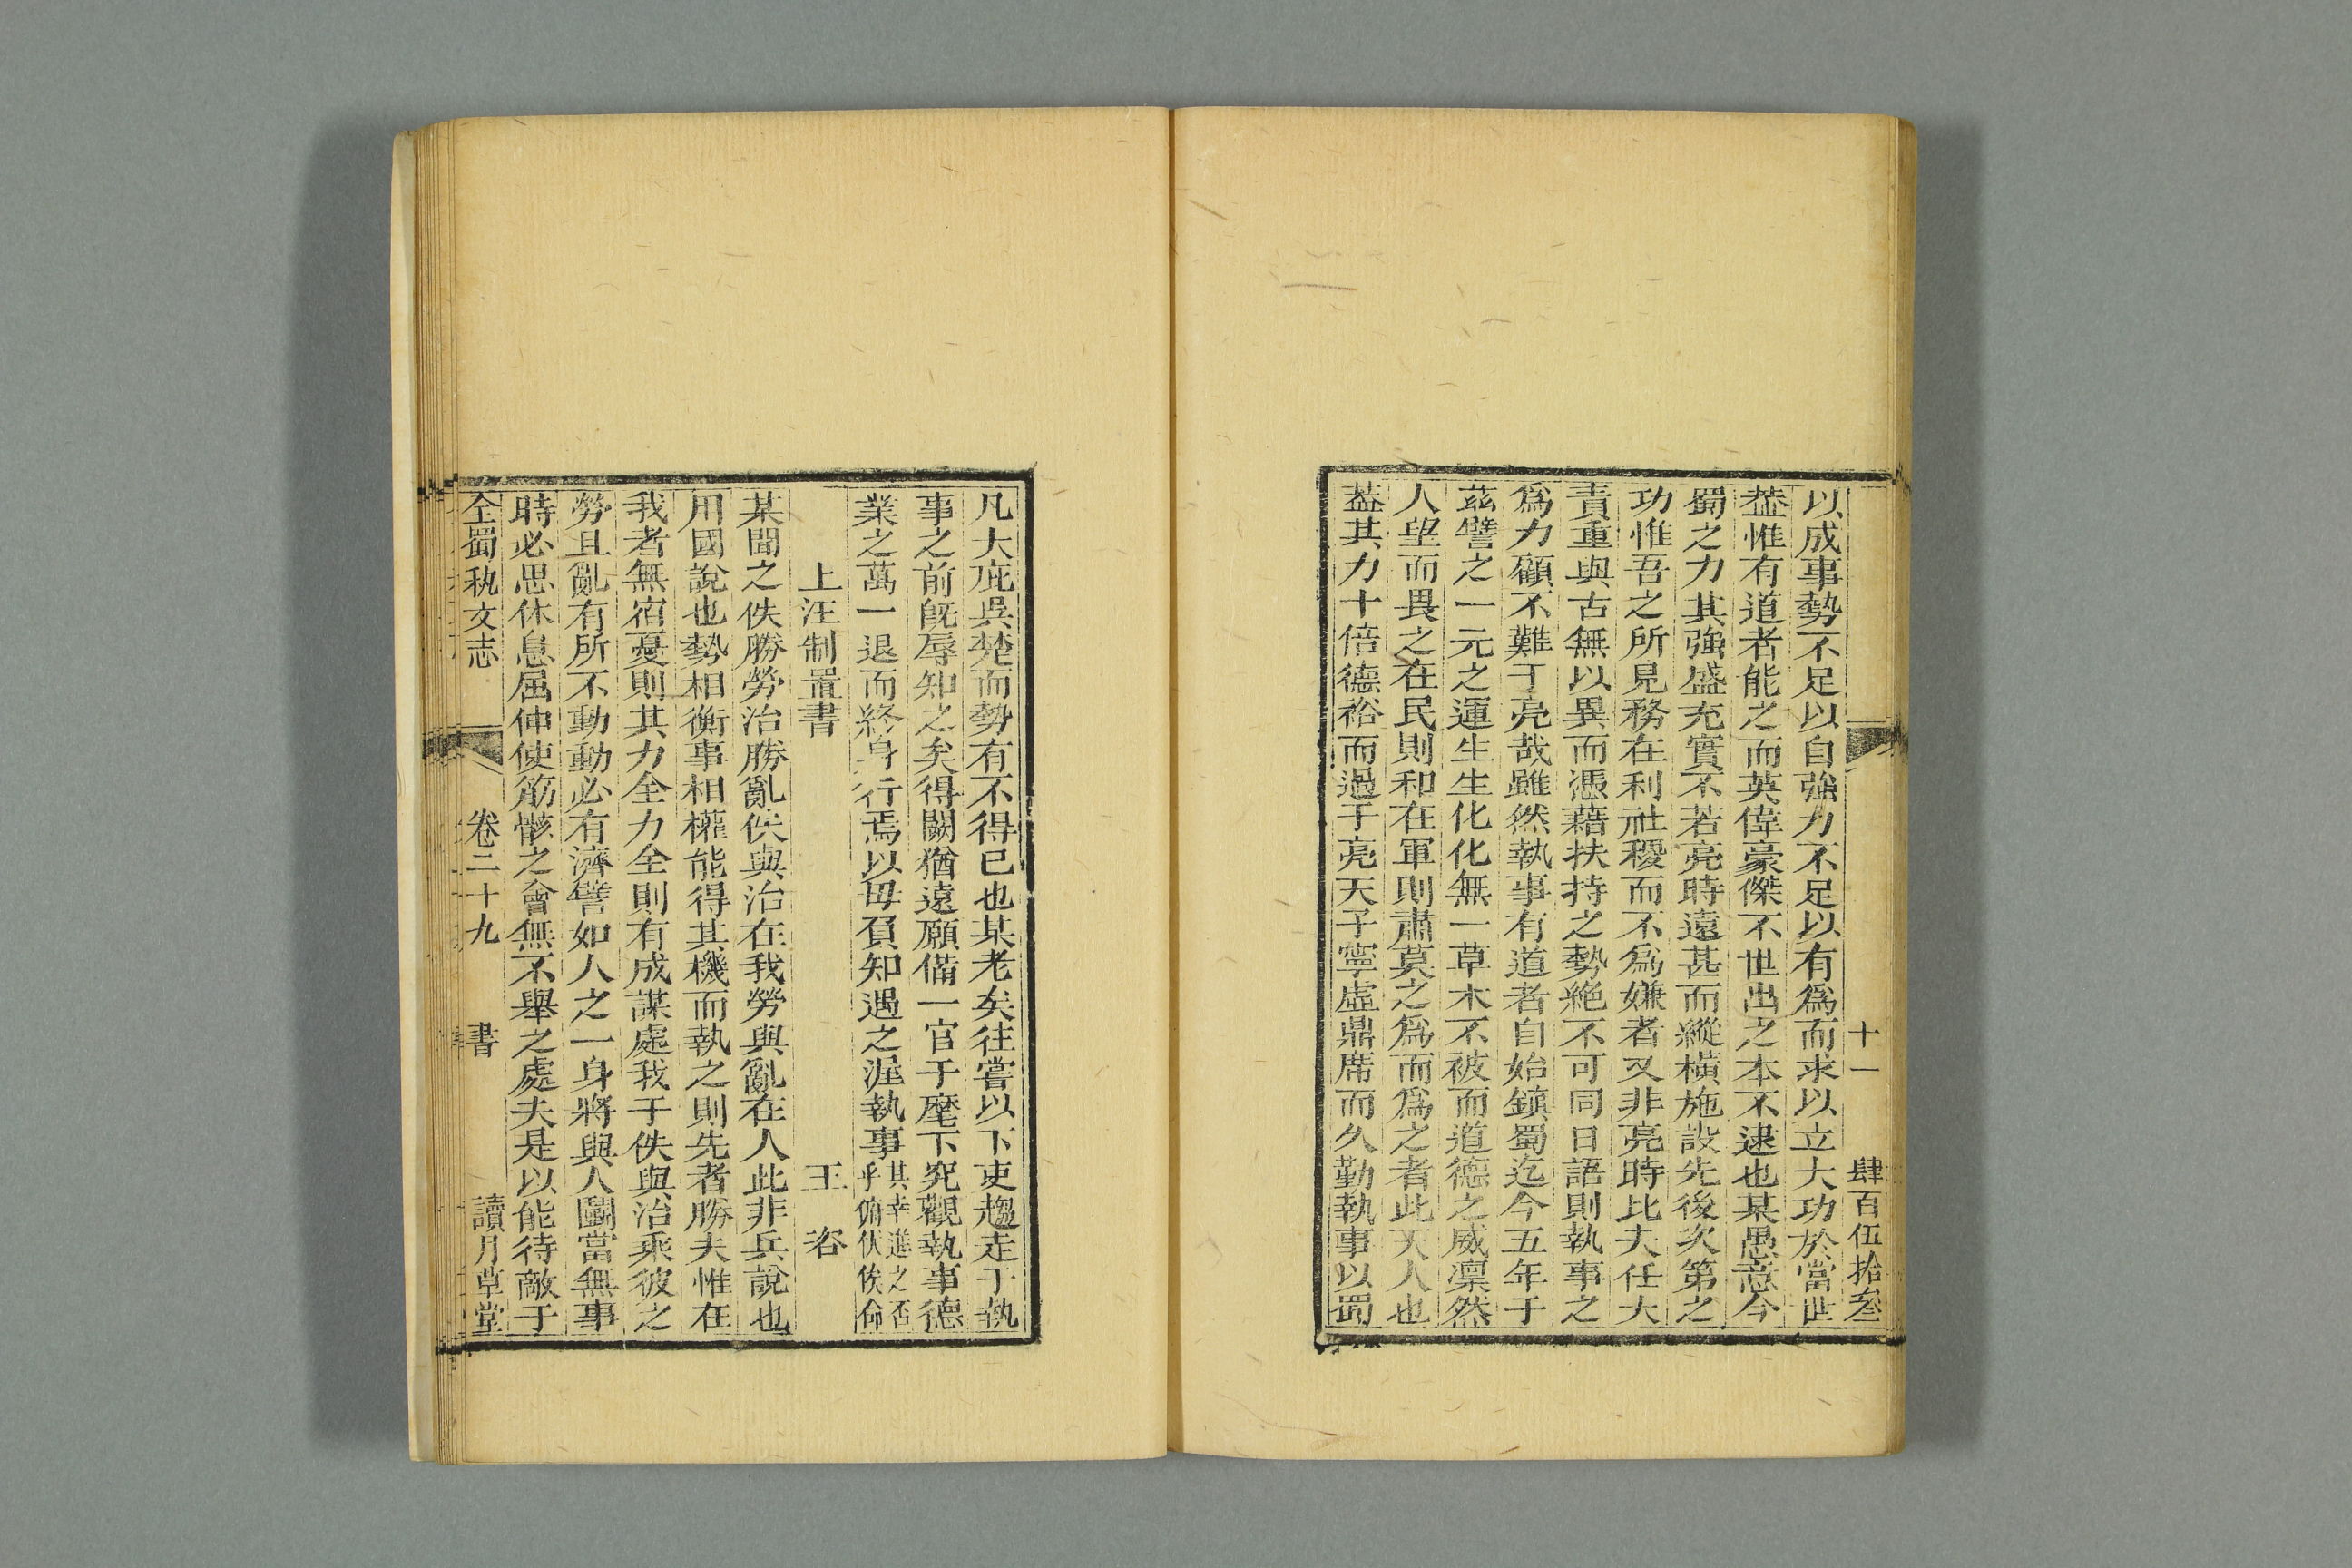 十一　肆百伍拾叁
以成事勢不足以自強力不足以有爲而求以立大功於當世
葢惟有道者能之而英偉豪傑不世出之本不逮也某愚意今
蜀之力其強盛充實不若亮時遠甚而縱橫施設先後次第之
功惟吾之所見務在利社稷而不爲嫌者又非亮時比夫任大
責重與古無以異而憑藉扶持之勢絶不可同日語則執事之
爲力顧不難于亮哉雖然執事有道者自始鎮蜀迄今五年于
茲譬之一元之運生生化化無一草木不被而道德之威凛然
人望而畏之在民則和在軍則肅莫之爲而爲之者此天人也
葢其力十倍德裕而過于亮天子寧虛鼎席而久勤執事以蜀
凡大庇吳楚而勢有不得已也某老矣往嘗以下吏趨走于執
事之前旣辱知之矣得闕猶遠願備一官于麾下究觀執事德
業之萬一退而終身行焉以毋負知遇之渥執事其幸進之否乎俯伏俟命
上汪制置書　王　咨
某聞之佚勝勞治勝亂佚與治在我勞與亂在人此非兵說也
用國說也勢相衡事相權能得其機而執之則先者勝夫惟在
我者無宿憂則其力全力全則有成謀處我于佚與治乘彼之
勞且亂有所不動動必有濟譬如人之一身將與人鬭當無事
時必思休息屈伸使筋骸之會無不舉之處夫是以能待敵于
全蜀秇文志　卷二十九　書　讀月草堂